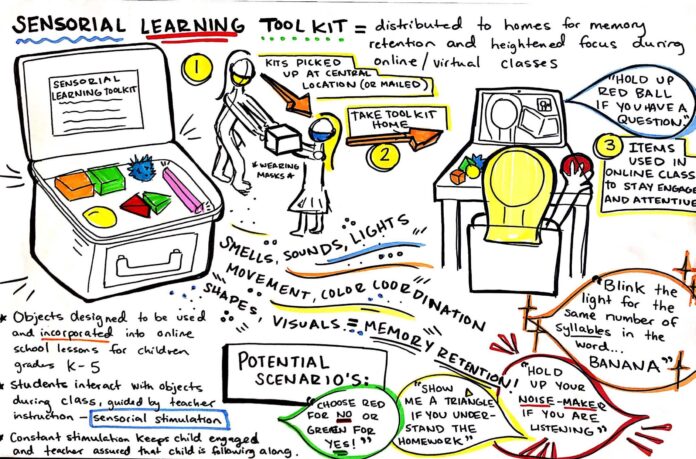 SENSORIAL LEARNING TOOLKIT = distributed to homes for memory
retention and heightened focus during
online/virtual classes
SENSORIAL
LEARNING TOOLKIT
1
KITS PICKED
UP AT CENTRAL
LOCATION (OR MAILED)
TAKE TOOLKIT
HOME
2
*WEARING
MASKS*
"HOLD UP
RED BALL
IF YOU HAVE A
QUESTION"
3 ITEMS
USED IN
ONLINE CLASS
TO STAY ENGAGED
AND ATTENTIVE
SMELLS, SOUNDS, LIGHTS
MOVEMENT, COLOR COORDINATION
SHAPES, VISUALS = MEMORY RETENTION!
* Objects designed to be used
and incorporated into online
school lessons for children
grades K-5
* Students interact with objects
during class, guided by teacher
instruction - sensorial stimulation
* Constant stimulation keeps child engaged
and teacher assured that child is following along.
POTENTIAL
SCENARIO'S:
"CHOOSE RED
FOR NO OR
GREEN FOR
YES!"
"SHOW
ME A TRIANGLE
IF YOU UNDER-
STAND THE
HOMEWORK"
"HOLD
UP YOUR
NOISE-MAKER
IF YOU ARE
LISTENING"
"Blink the
light for the
same number of
syllables in the
word...
BANANA"